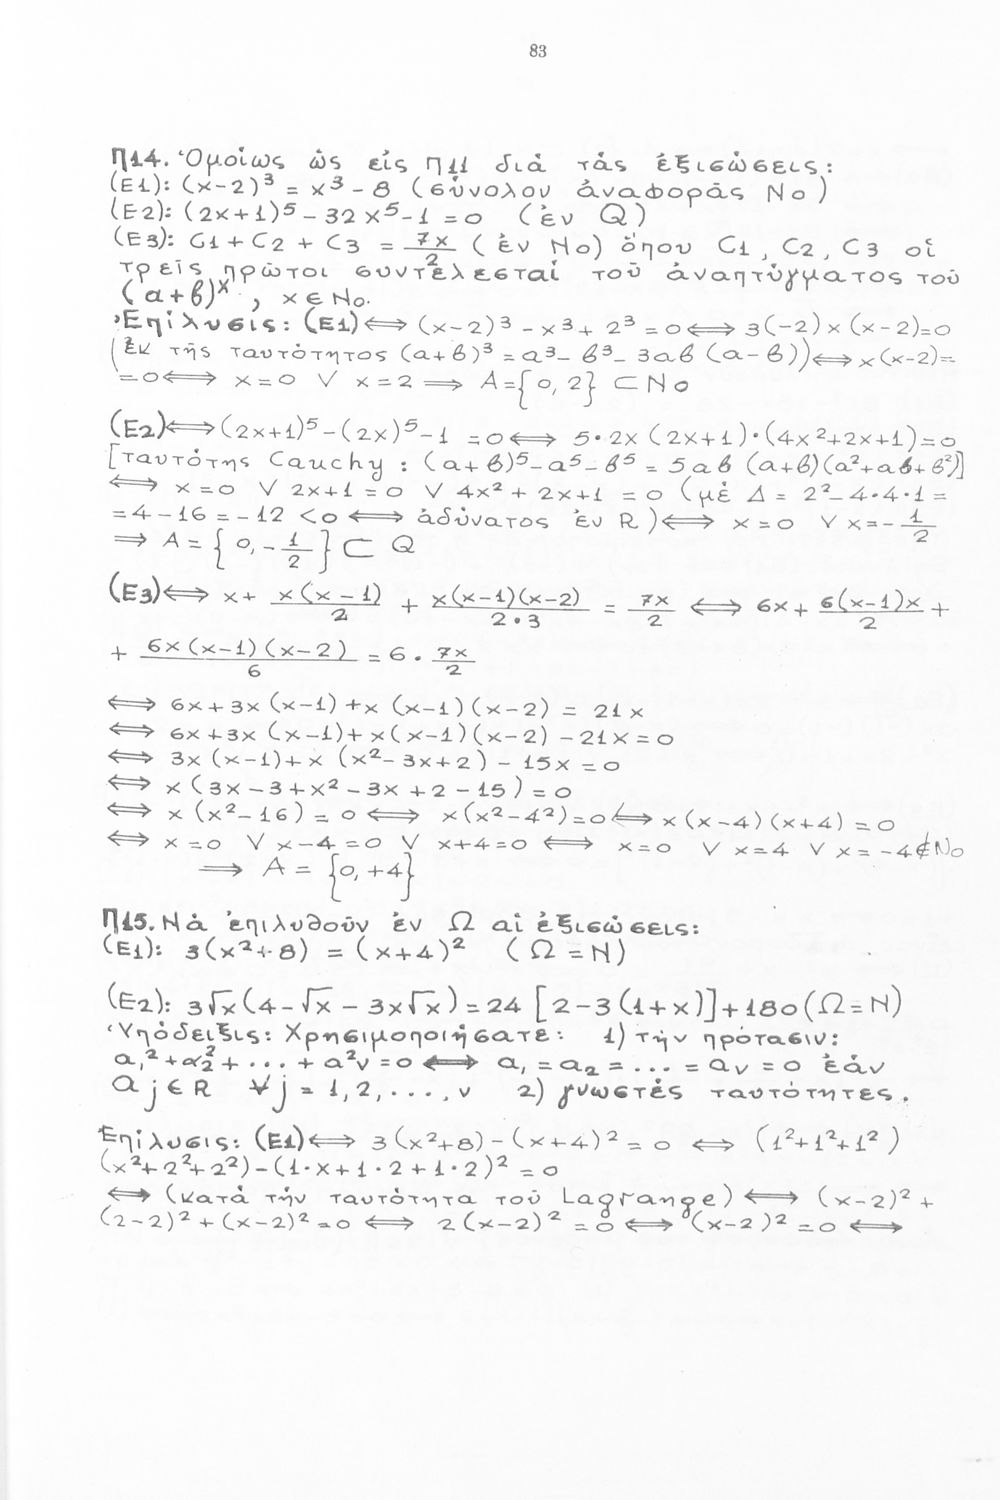 83
Π14. Ὁμοίως ὡς εἰς Π11 διὰ τὰς ἐξισώσεις:
(Ε1): (x-2)³ = x³ - 8 (σύνολον ἀναφορᾶς No)
(Ε2): (2x+1)⁵ - 32x⁵ - 1 = 0 (ἐν Q)
(Ε3): C1 + C2 + C3 = 7x/2 (ἐν No) ὅπου C1, C2, C3 οἱ
τρεῖς πρῶτοι συντελεσταί τοῦ ἀναπτύγματος τοῦ
(α+β)ˣ, x ∈ No.
Ἐπίλυσις: (Ε1) ⟺ (x-2)³ - x³ + 2³ = 0 ⟺ 3(-2)x(x-2)=0
(ἐκ τῆς ταυτότητος (α+β)³ = α³ - β³ - 3αβ (α-β)) ⟺ x(x-2)=
=0 ⟺ x=0 ∨ x=2 ⟹ A={0, 2} ⊂ No
(Ε2) ⟺ (2x+1)⁵ - (2x)⁵ - 1 = 0 ⟺ 5·2x (2x+1)·(4x²+2x+1)=0
[ταυτότης Cauchy : (α+β)⁵ - α⁵ - β⁵ = 5αβ (α+β)(α²+αβ+β²)]
⟺ x=0 ∨ 2x+1=0 ∨ 4x²+2x+1 = 0 (μὲ Δ = 2²-4·4·1 =
=4-16=-12 <0 ⟺ ἀδύνατος ἐν R) ⟺ x=0 ∨ x=-1/2
⟹ A = {0, -1/2} ⊂ Q
(Ε3) ⟺ x + x(x-1)/2 + x(x-1)(x-2)/2·3 = 7x/2 ⟺ 6x + 6(x-1)x/2 +
+ 6x(x-1)(x-2)/6 = 6 · 7x/2
⟺ 6x+3x(x-1)+x(x-1)(x-2) = 21x
⟺ 6x+3x(x-1)+x(x-1)(x-2)-21x=0
⟺ 3x(x-1)+x(x²-3x+2)-15x=0
⟺ x(3x-3+x²-3x+2-15)=0
⟺ x(x²-16)=0 ⟺ x(x²-4²)=0 ⟺ x(x-4)(x+4)=0
⟺ x=0 ∨ x-4=0 ∨ x+4=0 ⟺ x=0 ∨ x=4 ∨ x=-4∉No
⟹ A = {0, +4}
Π15. Νὰ ἐπιλυθοῦν ἐν Ω αἱ ἐξισώσεις:
(Ε1): 3(x²+8) = (x+4)² (Ω=N)
(Ε2): 3√x(4-√x-3x√x)=24 [2-3(1+x)]+180 (Ω=N)
Ὑπόδειξις: Χρησιμοποιήσατε: 1) τὴν πρότασιν:
α₁²+α₂²+...+α²ν=0 ⟺ α₁=α₂=...=αν=0 ἐάν
αj∈R ∀j=1,2,....,ν 2) γνωστές ταυτότητες.
Ἐπίλυσις: (Ε1) ⟺ 3(x²+8)-(x+4)²=0 ⟺ (1²+1²+1²)
(x²+2²+2²)-(1·x+1·2+1·2)²=0
⟺ (κατά τὴν ταυτότητα τοῦ Lagrange) ⟺ (x-2)²+
(2-2)²+(x-2)²=0 ⟺ 2(x-2)²=0 ⟺ (x-2)²=0 ⟺